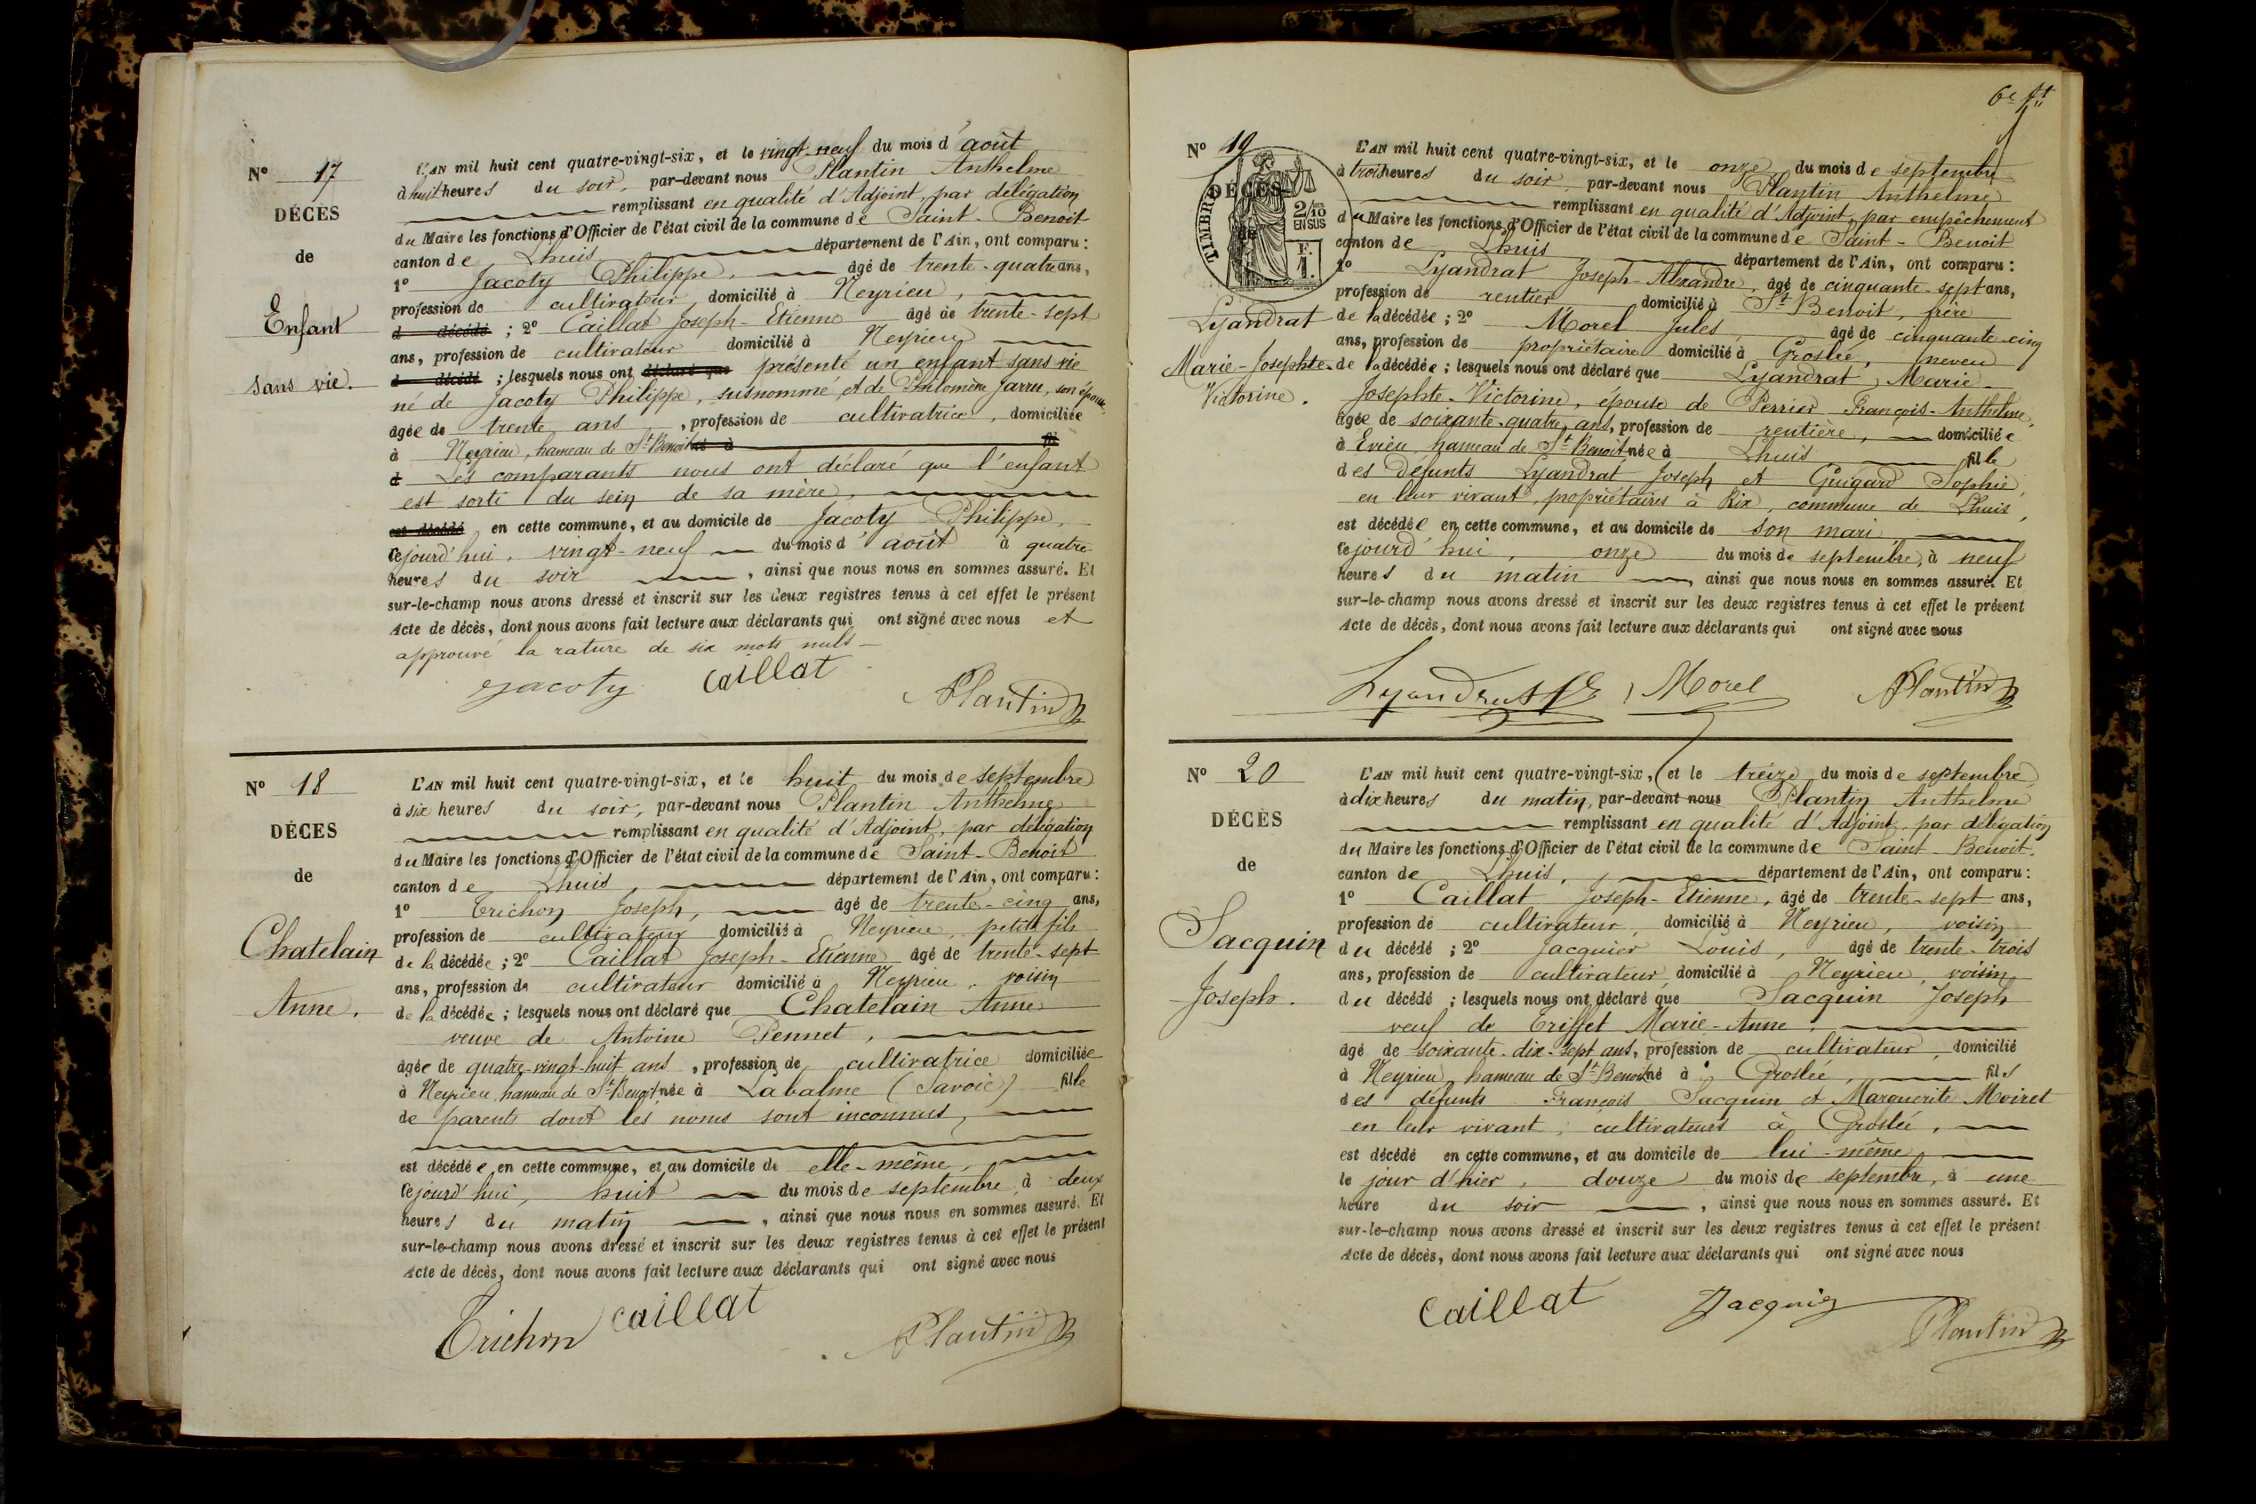 N° 17
DÉCÈS
de
Enfant
sans vie.
L'AN mil huit cent quatre-vingt-six, et le vingt-neuf du mois d'août
à huit heures du soir, par-devant nous Plantin Anthelme
remplissant en qualité d'Adjoint, par délégation
du Maire les fonctions d'Officier de l'état civil de la commune de Saint-Benoit
canton de Lhuis département de l'Ain, ont comparu :
1° Jacoty Philippe, âgé de trente-quatre ans,
profession de cultivateur domicilié à Neyrieu,
d décédé ; 2° Caillat Joseph-Etienne âgé de trente-sept
ans, profession de cultivateur domicilié à Neyrieu
d décédé ; lesquels nous ont déclaré que présenté un enfant sans vie
né de Jacoty Philippe, susnommé, et de Philomène Jarru, son épouse,
âgée de trente ans, profession de cultivatrice, domiciliée
à Neyrieu, hameau de St Benoit né à fil
d Les comparants nous ont déclaré que l'enfant
est sorti du sein de sa mère,
est décédé en cette commune, et au domicile de Jacoty Philippe,
cejourd'hui, vingt-neuf du mois d'août à quatre
heures du soir, ainsi que nous nous en sommes assuré. Et
sur-le-champ nous avons dressé et inscrit sur les deux registres tenus à cet effet le présent
Acte de décès, dont nous avons fait lecture aux déclarants qui ont signé avec nous et
approuvé la rature de six mots nuls
Jacoty Caillat Plantin
N° 18
DÉCÈS
de
Chatelain
Anne.
L'AN mil huit cent quatre-vingt-six, et le huit du mois de septembre
à six heures du soir, par-devant nous Plantin Anthelme
remplissant en qualité d'Adjoint, par délégation
du Maire les fonctions d'Officier de l'état civil de la commune de Saint-Benoit
canton de Lhuis, département de l'Ain, ont comparu :
1° Trichon Joseph, âgé de trente-cinq ans,
profession de cultivateur domicilié à Neyrieu, petit fils
de la décédée ; 2° Caillat Joseph-Etienne âgé de trente-sept
ans, profession de cultivateur domicilié à Neyrieu, voisin
de la décédée ; lesquels nous ont déclaré que Chatelain Anne
veuve de Antoine Pennet,
âgée de quatre-vingt-huit ans, profession de cultivatrice domiciliée
à Neyrieu, hameau de St Benoit née à Labalme (Savoie) fille
de parents dont les noms sont inconnus,
est décédée en cette commune, et au domicile de elle-même,
cejourd'hui, huit du mois de septembre, à deux
heures du matin, ainsi que nous nous en sommes assuré. Et
sur-le-champ nous avons dressé et inscrit sur les deux registres tenus à cet effet le présent
Acte de décès, dont nous avons fait lecture aux déclarants qui ont signé avec nous
Trichon Caillat Plantin
N° 19
DÉCÈS
de
TIMBRE
2/10
EN SUS
F.
1.
Lyandrat
Marie-Josephte-
Victorine.
L'AN mil huit cent quatre-vingt-six, et le onze du mois de septembre
à trois heures du soir par-devant nous Plantin Anthelme
remplissant en qualité d'Adjoint, par empêchement
du Maire les fonctions d'Officier de l'état civil de la commune de Saint-Benoit
canton de Lhuis département de l'Ain, ont comparu :
1° Lyandrat Joseph-Alexandre, âgé de cinquante-sept ans,
profession de rentier domicilié à St Benoit, frère
de la décédée ; 2° Morel Jules, âgé de cinquante-cinq
ans, profession de propriétaire domicilié à Groslée, neveu
de la décédée ; lesquels nous ont déclaré que Lyandrat, Marie-
Josephte-Victorine, épouse de Perrier François-Anthelme,
âgée de soixante-quatre ans, profession de rentière, domiciliée
à Evieu hameau de St Benoit née à Lhuis fille
des défunts Lyandrat Joseph et Guigard Sophie,
en leur vivant, propriétaires à Rix, commune de Lhuis,
est décédée en cette commune, et au domicile de son mari,
cejourd'hui, onze du mois de septembre, à neuf
heures du matin, ainsi que nous nous en sommes assuré. Et
sur-le-champ nous avons dressé et inscrit sur les deux registres tenus à cet effet le présent
Acte de décès, dont nous avons fait lecture aux déclarants qui ont signé avec nous
Lyandrat Morel Plantin
N° 20
DÉCÈS
de
Sacquin
Joseph.
L'AN mil huit cent quatre-vingt-six, et le treize du mois de septembre
à dix heures du matin, par-devant nous Plantin Anthelme
remplissant en qualité d'Adjoint, par délégation
du Maire les fonctions d'Officier de l'état civil de la commune de Saint-Benoit.
canton de Lhuis, département de l'Ain, ont comparu :
1° Caillat Joseph-Etienne, âgé de trente-sept ans,
profession de cultivateur domicilié à Neyrieu, voisin
du décédé ; 2° Jacquier Louis, âgé de trente-trois
ans, profession de cultivateur domicilié à Neyrieu, voisin
du décédé ; lesquels nous ont déclaré que Sacquin Joseph
veuf de Triffet Marie-Anne,
âgé de soixante-dix-sept ans, profession de cultivateur, domicilié
à Neyrieu, hameau de St Benoit né à Groslée, fils
des défunts François Sacquin et Marguerite Moiret
en leur vivant, cultivateurs à Groslée,
est décédé en cette commune, et au domicile de lui-même,
le jour d'hier, douze du mois de septembre, à une
heure du soir, ainsi que nous nous en sommes assuré. Et
sur-le-champ nous avons dressé et inscrit sur les deux registres tenus à cet effet le présent
Acte de décès, dont nous avons fait lecture aux déclarants qui ont signé avec nous
Caillat Jacquier Plantin